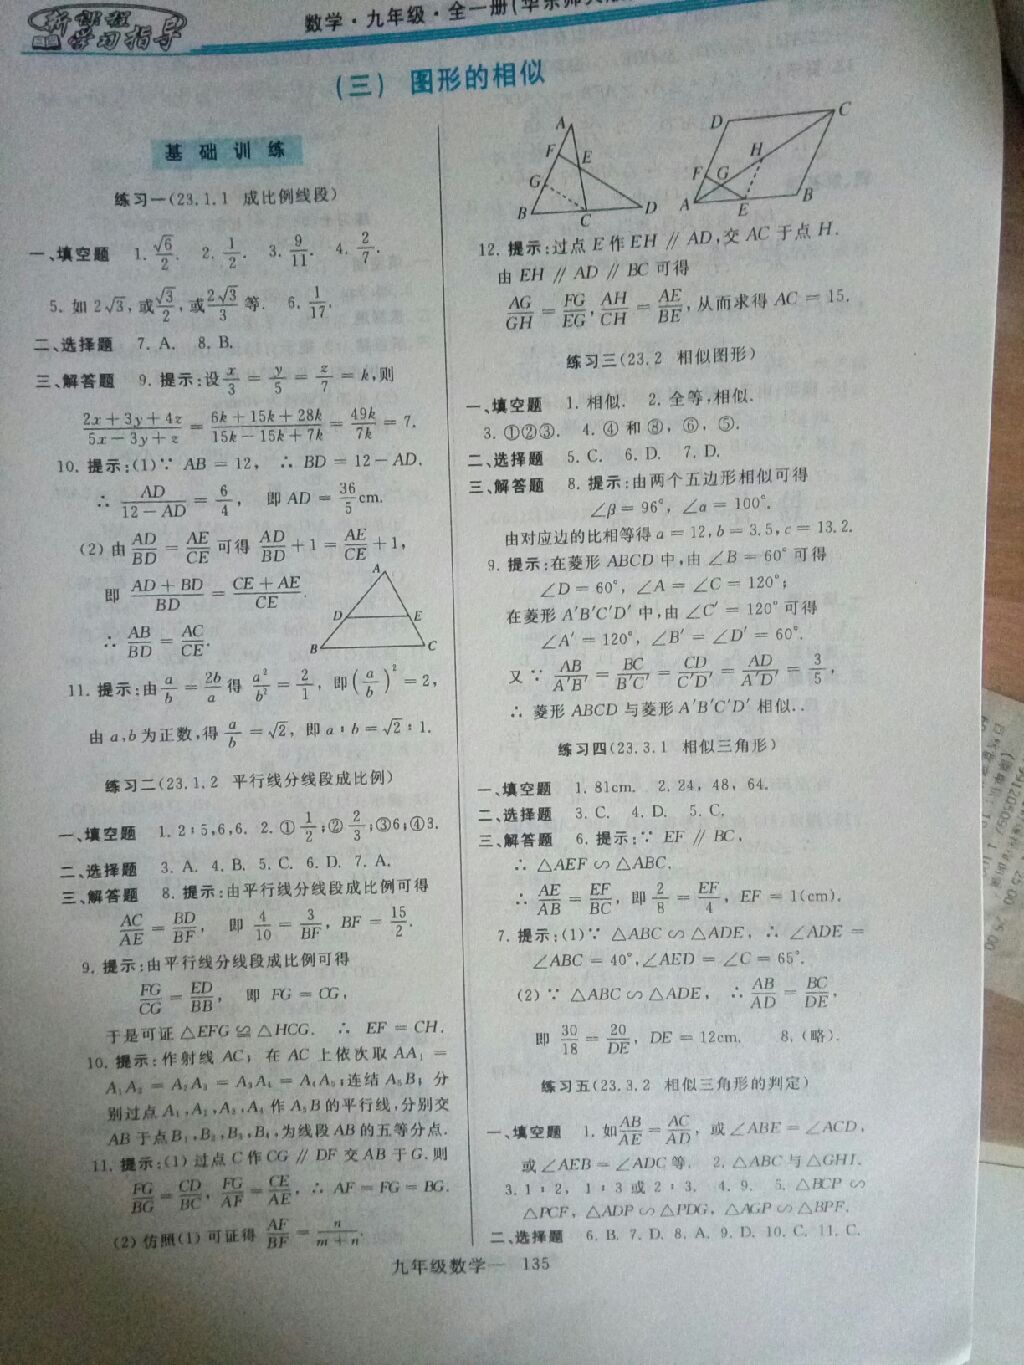 新课程
学习指导
数学·九年级·全一册(华东师大版
(三) 图形的相似
基础训练
练习一(23.1.1 成比例线段)
一、填空题 1. √6/2. 2. 1/2. 3. 9/11. 4. 2/7.
5. 如 2√3, 或 √3/2, 或 2√3/3 等. 6. 1/17.
二、选择题 7. A. 8. B.
三、解答题 9. 提示:设 x/3 = y/5 = z/7 = k,则
(2x+3y+4z)/(5x-3y+z) = (6k+15k+28k)/(15k-15k+7k) = 49k/7k = 7.
10. 提示:(1)∵ AB = 12, ∴ BD = 12 - AD.
∴ AD/(12-AD) = 6/4, 即 AD = 36/5 cm.
(2) 由 AD/BD = AE/CE 可得 AD/BD + 1 = AE/CE + 1,
即 (AD+BD)/BD = (CE+AE)/CE.
∴ AB/BD = AC/CE.
A
D E
B C
11. 提示:由 a/b = 2b/a 得 a²/b² = 2/1, 即 (a/b)² = 2,
由 a,b 为正数,得 a/b = √2, 即 a∶b = √2∶1.
练习二(23.1.2 平行线分线段成比例)
一、填空题 1. 2∶5,6,6. 2. ① 1/2;② 2/3;③6;④3.
二、选择题 3. A. 4. B. 5. C. 6. D. 7. A.
三、解答题 8. 提示:由平行线分线段成比例可得
AC/AE = BD/BF, 即 4/10 = 3/BF, BF = 15/2.
9. 提示:由平行线分线段成比例可得
FG/CG = ED/BB, 即 FG = CG,
于是可证 △EFG ≌ △HCG. ∴ EF = CH.
10. 提示:作射线 AC; 在 AC 上依次取 AA₁ =
A₁A₂ = A₂A₃ = A₃A₄ = A₄A₅;连结 A₅B; 分
别过点 A₁,A₂,A₃,A₄ 作 A₅B 的平行线,分别交
AB 于点 B₁,B₂,B₃,B₄,为线段 AB 的五等分点.
11. 提示:(1) 过点 C 作 CG ∥ DF 交 AB 于 G.则
FG/BG = CD/BC, FG/AF = CE/AE, ∴ AF = FG = BG.
(2) 仿照(1) 可证得 AF/BF = n/(m+n).
A F E G B C D
D C H F G A E B
12. 提示:过点 E 作 EH ∥ AD,交 AC 于点 H.
由 EH ∥ AD ∥ BC 可得
AG/GH = FG/EG, AH/CH = AE/BE, 从而求得 AC = 15.
练习三(23.2 相似图形)
一、填空题 1. 相似. 2. 全等,相似.
3. ①②③. 4. ④ 和 ⑧, ⑥, ⑤.
二、选择题 5. C. 6. D. 7. D.
三、解答题 8. 提示:由两个五边形相似可得
∠β = 96°, ∠α = 100°.
由对应边的比相等得 a = 12, b = 3.5, c = 13.2.
9. 提示:在菱形 ABCD 中,由 ∠B = 60° 可得
∠D = 60°, ∠A = ∠C = 120°;
在菱形 A′B′C′D′ 中,由 ∠C′ = 120° 可得
∠A′ = 120°, ∠B′ = ∠D′ = 60°.
又 ∵ AB/A′B′ = BC/B′C′ = CD/C′D′ = AD/A′D′ = 3/5,
∴ 菱形 ABCD 与菱形 A′B′C′D′ 相似..
练习四(23.3.1 相似三角形)
一、填空题 1. 81cm. 2. 24, 48, 64.
二、选择题 3. C. 4. D. 5. C.
三、解答题 6. 提示:∵ EF ∥ BC,
∴ △AEF ∽ △ABC.
∴ AE/AB = EF/BC, 即 2/8 = EF/4, EF = 1(cm).
7. 提示:(1)∵ △ABC ∽ △ADE, ∴ ∠ADE =
∠ABC = 40°,∠AED = ∠C = 65°.
(2) ∵ △ABC ∽ △ADE, ∴ AB/AD = BC/DE,
即 30/18 = 20/DE, DE = 12cm. 8. (略).
练习五(23.3.2 相似三角形的判定)
一、填空题 1. 如 AB/AE = AC/AD, 或 ∠ABE = ∠ACD,
或 ∠AEB = ∠ADC 等. 2. △ABC 与 △GHI.
3. 1∶2, 1∶3 或 2∶3. 4. 9. 5. △BCP ∽
△PCF, △ADP ∽ △PDG, △AGP ∽ △BPF.
二、选择题 6. B. 7. D. 8. A. 9. D. 10. C. 11. C.
九年级数学— 135